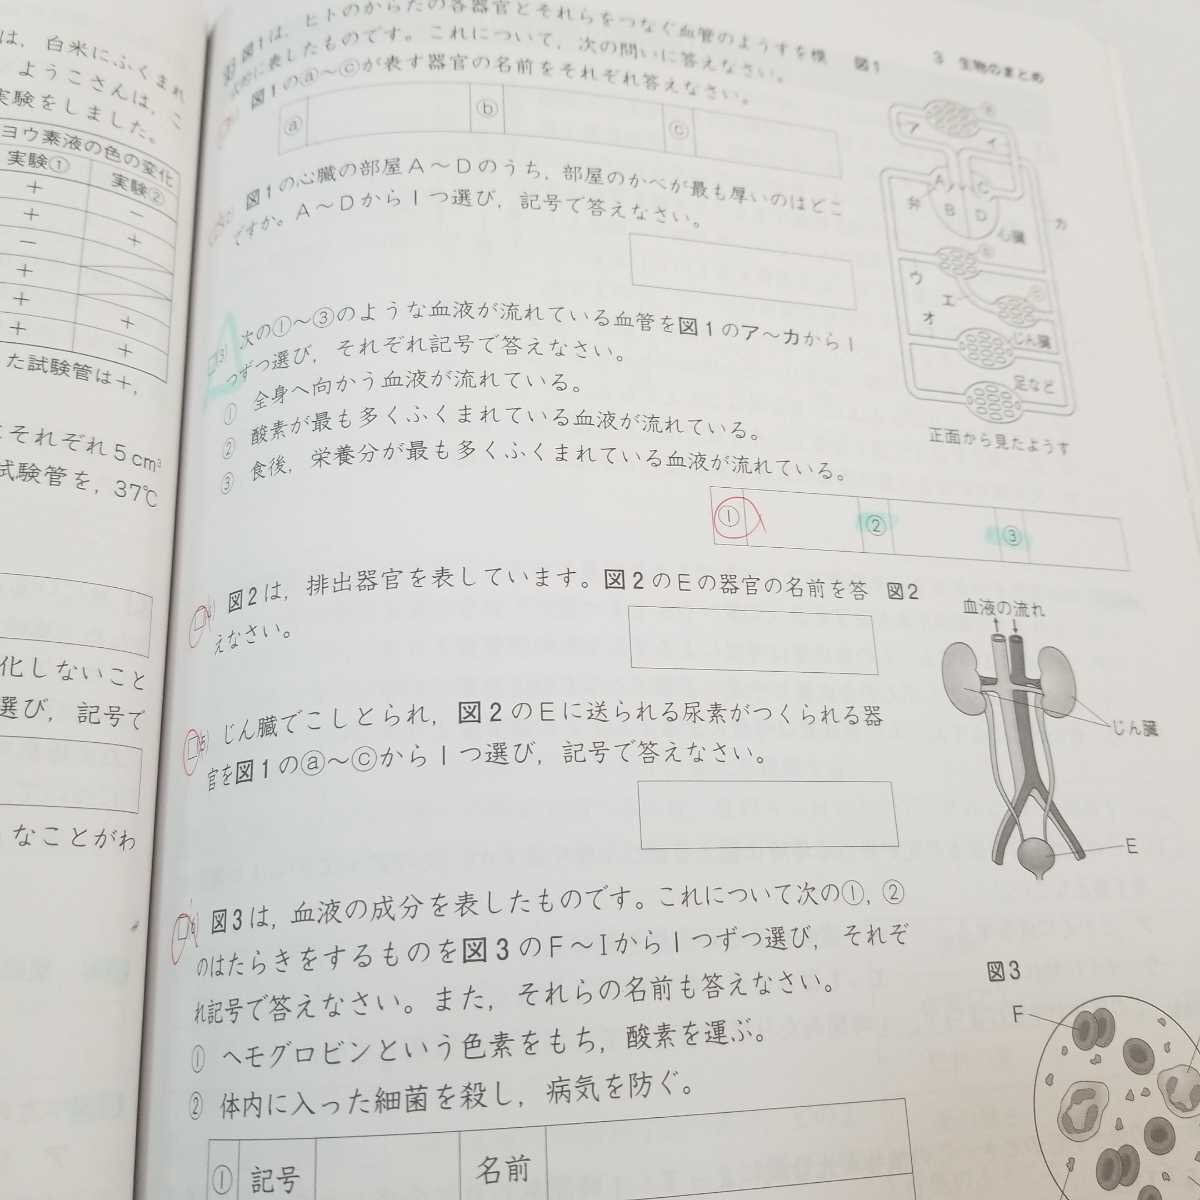 は，白米にふくまれ
ようこさんは，こ
実験をしました。
ヨウ素液の色の変化
実験① 実験②
＋ －
＋ ＋
－
＋
＋ ＋
＋ ＋
た試験管は＋，
それぞれ5cm³
試験管を，37℃
化しないこと
選び，記号で
なことがわ
3 生物のまとめ
図1は，ヒトのからだの各器官とそれらをつなぐ血管のようすを模
式的に表したものです。これについて，次の問いに答えなさい。
図1のⓐ～ⓒが表す器官の名前をそれぞれ答えなさい。
ⓐ ⓑ ⓒ
図1の心臓の部屋A～Dのうち，部屋のかべが最も厚いのはどこ
ですか。A～Dから1つ選び，記号で答えなさい。
(3) 次の①～③のような血液が流れている血管を図1のア～カから1
つずつ選び，それぞれ記号で答えなさい。
① 全身へ向かう血液が流れている。
② 酸素が最も多くふくまれている血液が流れている。
③ 食後，栄養分が最も多くふくまれている血液が流れている。
① ② ③
図1
ⓐ
ア
イ
A C
弁 B D
心臓
カ
ⓑ
ウ
エ
ⓒ
オ
じん臓
足など
正面から見たようす
(4) 図2は，排出器官を表しています。図2のEの器官の名前を答
えなさい。
(5) じん臓でこしとられ，図2のEに送られる尿素がつくられる器
官を図1のⓐ～ⓒから1つ選び，記号で答えなさい。
図2
血液の流れ
じん臓
E
(6) 図3は，血液の成分を表したものです。これについて次の①，②
のはたらきをするものを図3のF～Iから1つずつ選び，それぞ
れ記号で答えなさい。また，それらの名前も答えなさい。
① ヘモグロビンという色素をもち，酸素を運ぶ。
② 体内に入った細菌を殺し，病気を防ぐ。
① 記号 名前
図3
F